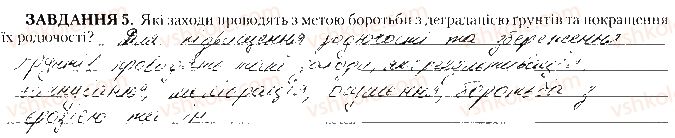 ЗАВДАННЯ 5. Які заходи проводять з метою боротьби з деградацією ґрунтів та покращення
їх родючості? Для підвищення родючості та збереження
ґрунтів проводять такі заходи, як: рекультивація
вапнування, меліорація, осушення, боротьба з
ерозією та ін.